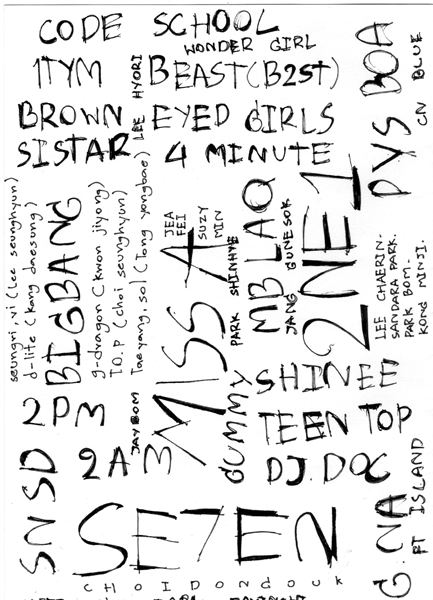 CODE SCHOOL
WONDER GIRL
1TYM
LEE HYORI
BEAST (B2ST)
BOA
CN BLUE
BROWN EYED GIRLS
SISTAR
4 MINUTE
PYS
seungri, vi (Lee seunghyun)
d-lite (kang daesung)
BIGBANG
g-dragon (kwon jiyong)
T.O.P (choi seunghyun)
Taeyang, sol (Tong yongbae)
MISS A
JEA
FEI
SUZY
MIN
PARK SHINHYE
MBLAQ
JANG GUNESOK
2NE1
LEE CHAERIN.
SANDARA PARK.
PARK BOM.
KONG MINJI.
2PM
JAYBOM
GUMMY
SHINEE
TEEN TOP
SNSD
2AM
DJ. DOC
SE7EN
G.NA
FT ISLAND
CHOIDONGOUK